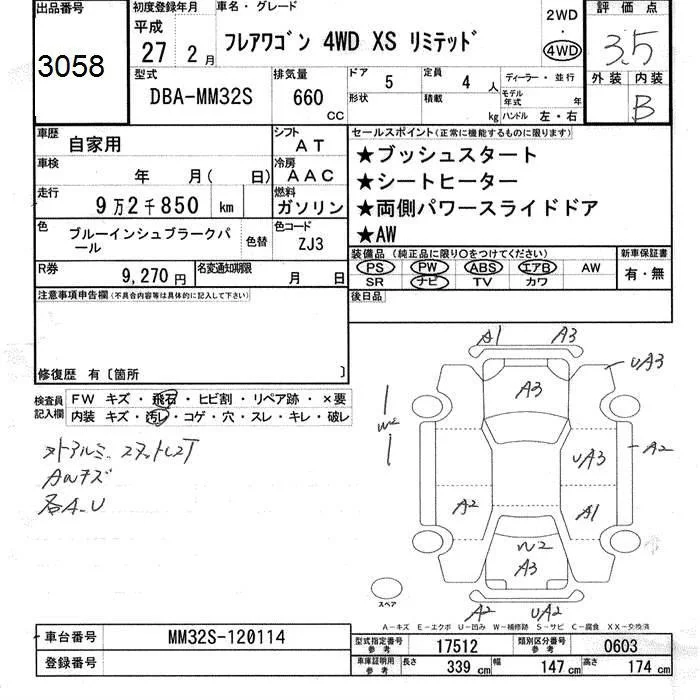 出品番号
3058
初度登録年月
平成
27 2月
車名・グレード
フレアワゴン 4WD XS リミテッド
2WD
・
4WD
評価点
3.5
外装 内装
B
型式
DBA-MM32S
排気量
660 CC
ドア 5
形状
定員 4 人
積載 kg
ディーラー・並行
モデル年式 年
ハンドル 左・右
車歴 自家用
シフト AT
車検 年 月( 日)
冷房 AAC
走行 9万2千850 km
燃料 ガソリン
色 ブルーインシュブラークパール
色替
色コード ZJ3
R券 9,270円
名変通知期限 月 日
セールスポイント(正常に機能するものに限ります)
★プッシュスタート
★シートヒーター
★両側パワースライドドア
★AW
装備品(純正品に限り○をつけてください)
PS PW ABS エアB AW
SR ナビ TV カワ
新車保証書
有・無
後日品
注意事項申告欄(不具合内容等は具体的に記入して下さい)
修復歴 有〔箇所 〕
検査員記入欄
FW キズ・飛石・ヒビ割・リペア跡・×要
内装 キズ・汚レ・コゲ・穴・スレ・キレ・破レ
AWキズ
各A-U
A1 A3
UA3
A3
W2
UA3
A2
A2
A1
W2
A3
A2 UA2
スペア
A-キズ E-エクボ U-凹み W-補修跡 S-サビ C-腐食 XX-交換済
車台番号 MM32S-120114
登録番号
型式指定番号 参考 17512
類別区分番号 参考 0603
車庫証明用 参考
長さ 339 cm
幅 147 cm
高さ 174 cm